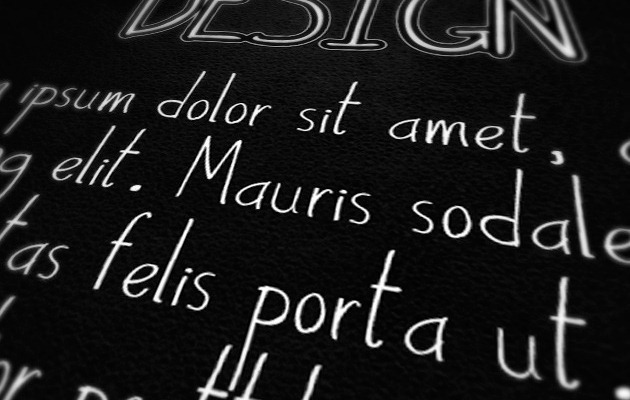 DESIGN
ipsum dolor sit amet,
elit. Mauris sodale
tas felis porta ut.